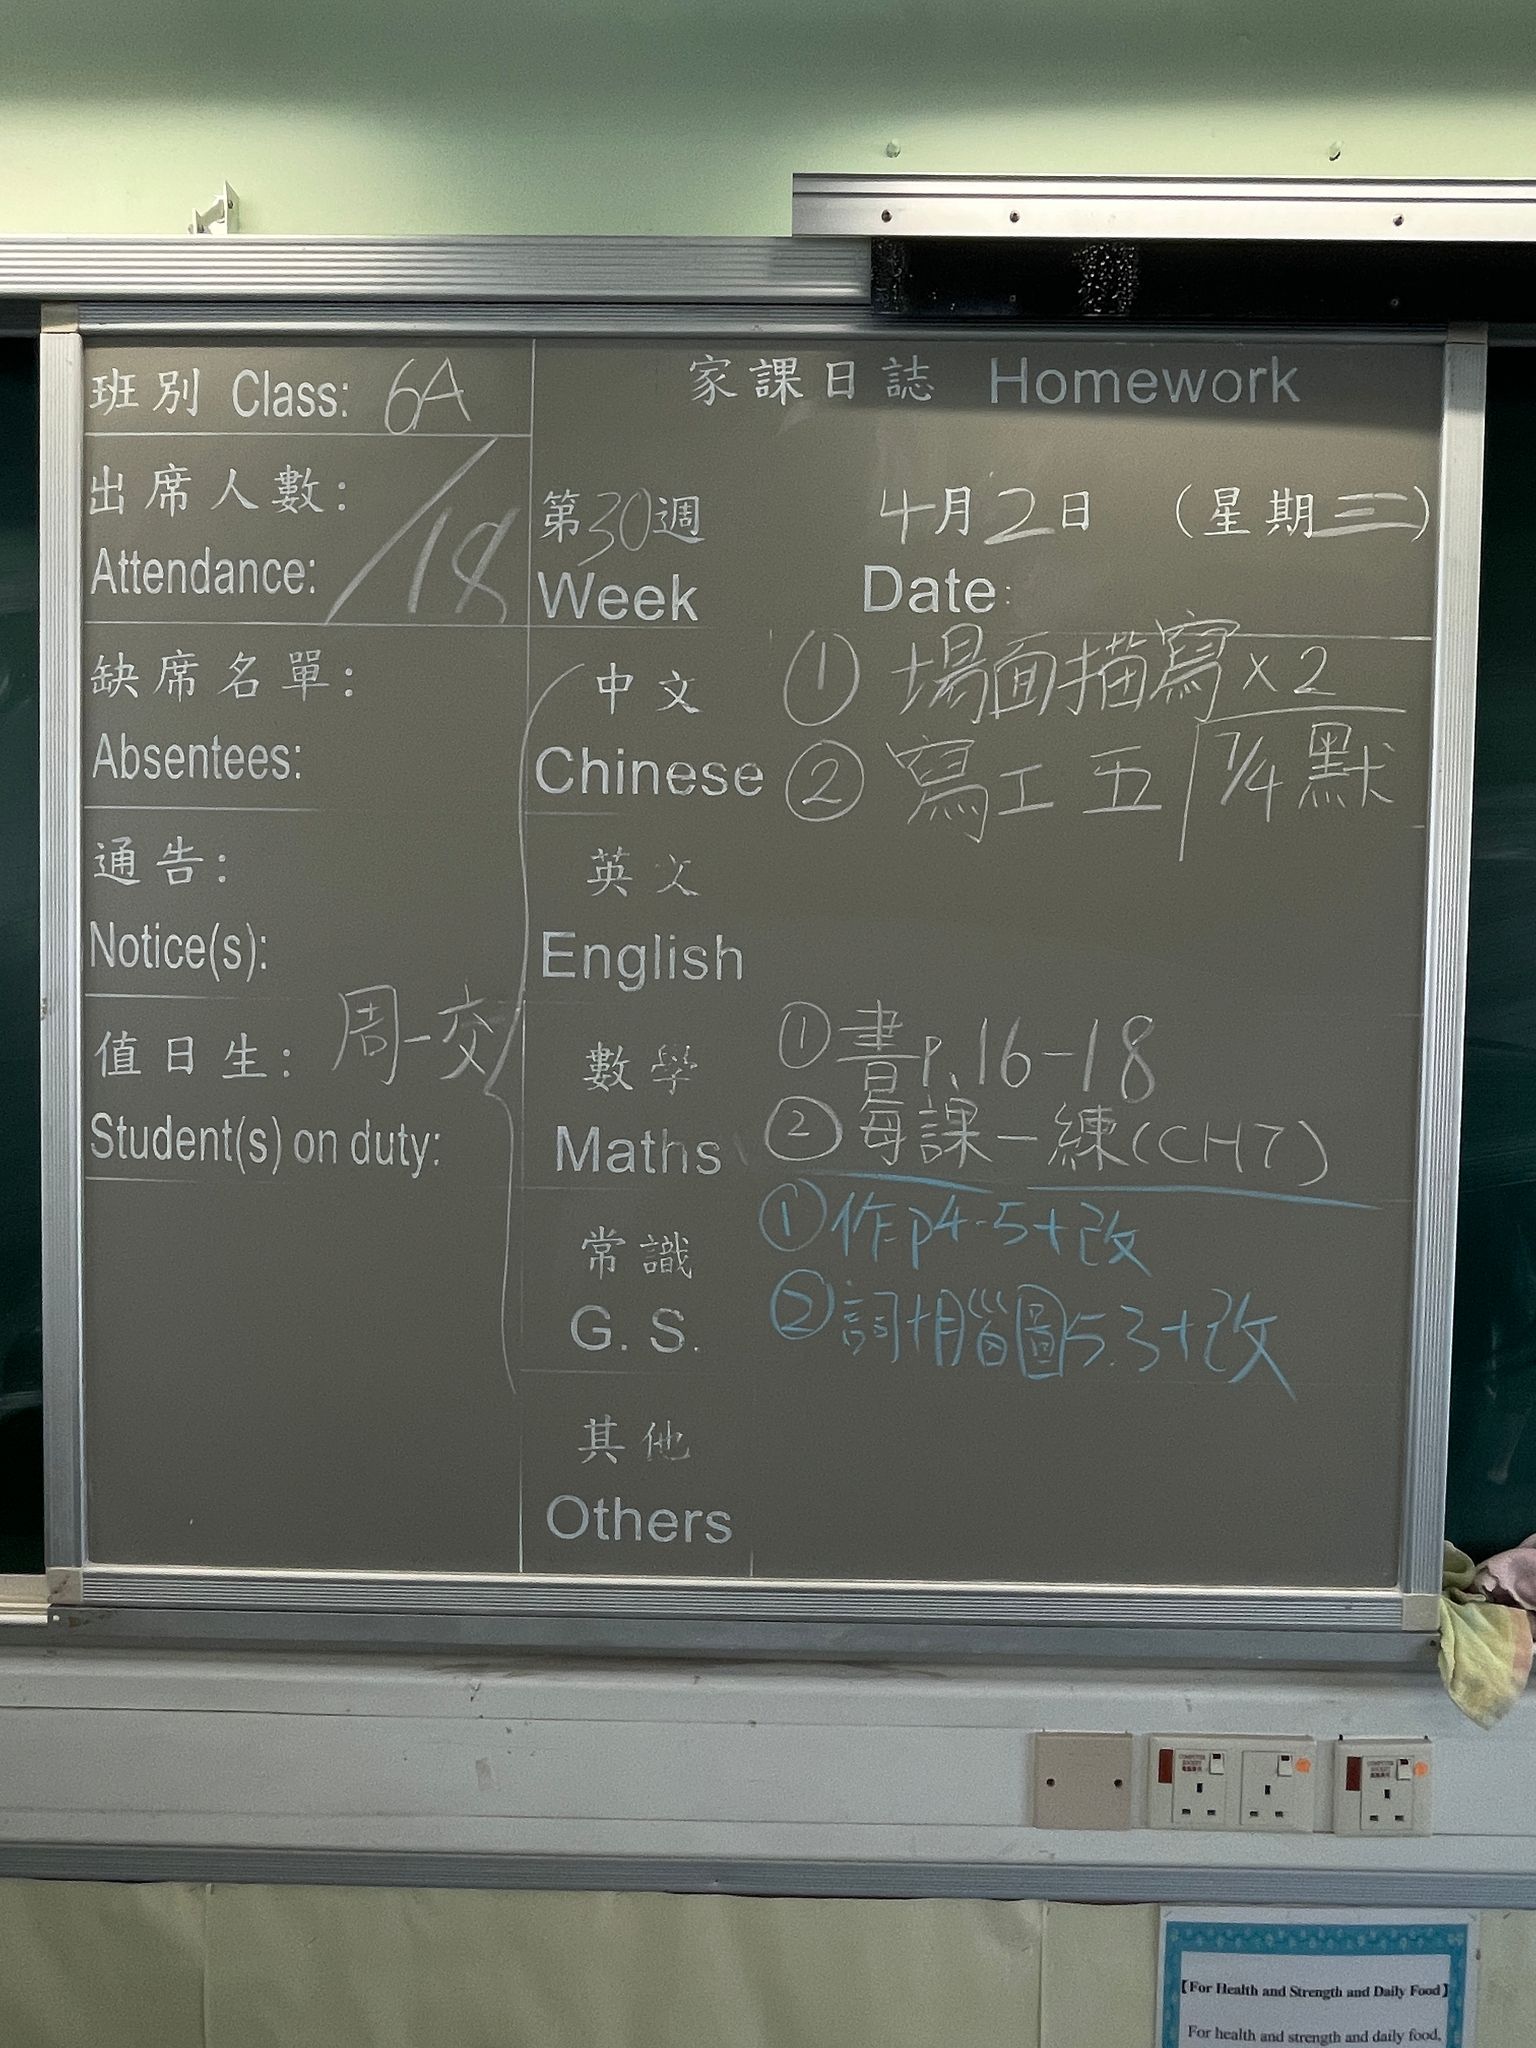 班別 Class: 6A
出席人數:
Attendance: /18
缺席名單:
Absentees:
通告:
Notice(s):
值日生: 周一交
Student(s) on duty:
家課日誌 Homework
第30週 4月2日 (星期三)
Week Date:
中文 ① 場面描寫x2
Chinese ② 寫工五 7/4 默
英文
English
數學 ① 書p.16-18
Maths ② 每課一練(CH7)
常識 ① 作p4-5+改
G. S. ② 詞+腦圖5.3+改
其他
Others
COMPUTER
SOCKET
COMPUTER
SOCKET
【For Health and Strength and Daily Food】
For health and strength and daily food,